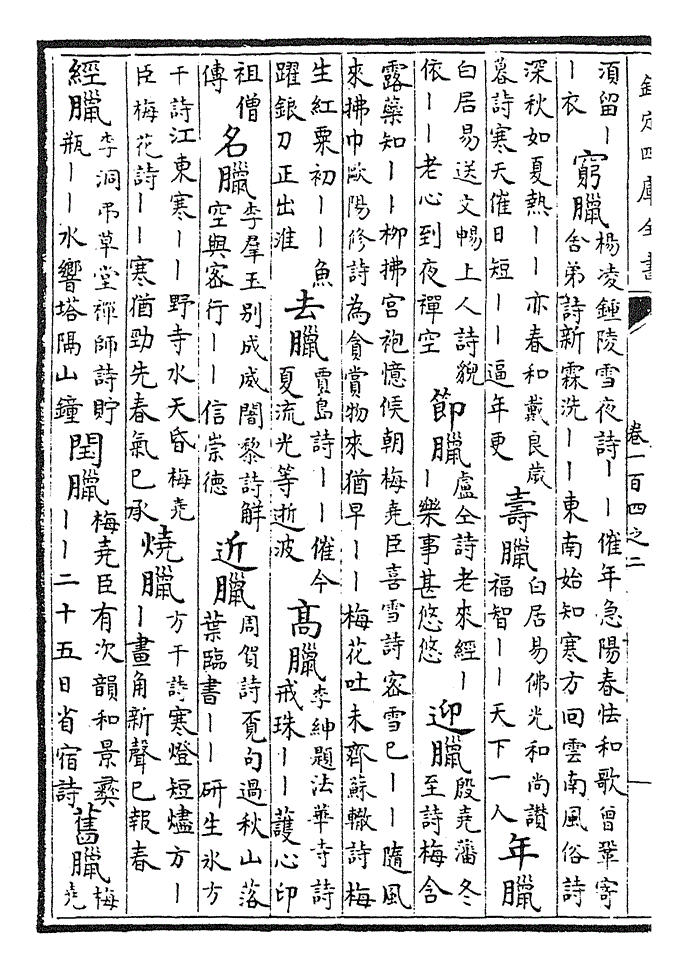 欽定四庫全書
卷一百四之二
湏留丨
丨衣
窮臘
楊凌鍾陵雪夜詩丨丨催年急陽春怯和歌曾鞏寄
舍弟詩新霖洗丨丨東南始知寒方回雲南風俗詩
深秋如夏熱丨丨亦春和戴良歲
暮詩寒天催日短丨丨逼年更
壽臘
白居易佛光和尚讃
福智丨丨天下一人
年臘
白居易送文暢上人詩貌
依丨丨老心到夜禪空
節臘
盧仝詩老來經丨
丨樂事甚悠悠
迎臘
殷堯藩冬
至詩梅含
露蘂知丨丨柳拂宫袍憶候朝梅堯臣喜雪詩客雪已丨丨隨風
來拂巾歐陽修詩為貪賞物來猶早丨丨梅花吐未齊蘇轍詩梅
生紅粟初丨丨魚
躍銀刀正出淮
去臘
賈島詩丨丨催今
夏流光等逝波
高臘
李紳題法華寺詩
戒珠丨丨護心印
祖僧
傳
名臘
李羣玉别成威闍黎詩解
空與密行丨丨信崇德
近臘
周賀詩覓句過秋山落
葉臨書丨丨研生氷方
干詩江東寒丨丨野寺水天昏梅堯
臣梅花詩丨丨寒猶勁先春氣已承
燒臘
方干詩寒燈短燼方丨
丨畫角新聲已報春
經臘
李洞弔草堂禪師詩貯
瓶丨丨水響塔隔山鐘
閏臘
梅堯臣有次韻和景彞
丨丨二十五日省宿詩
舊臘
梅
堯